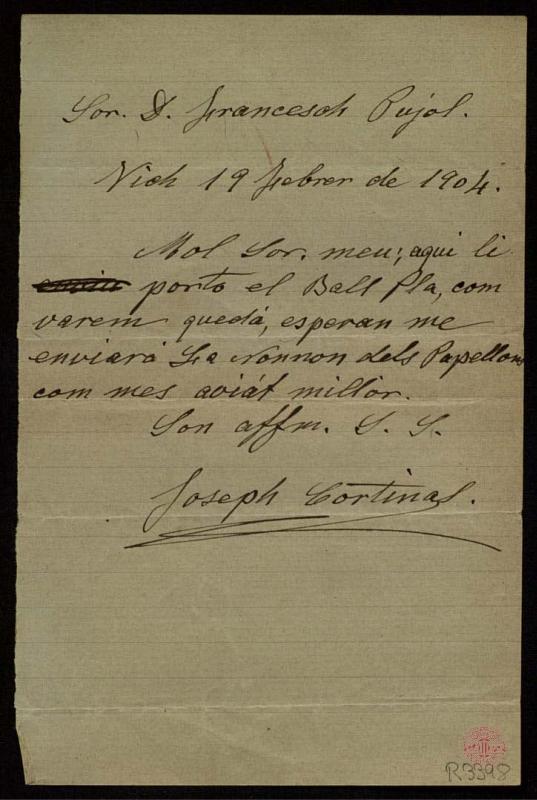 Sor. D. Francesch Pujol.
Vich 19 Febrer de 1904.
Mol Sor. meu; aqui li
porto el Ball Pla, com
varem quedá, esperan me
enviará La Nonnon dels Papellons
com mes aviát millor.
Son affm. S. S.
Joseph Cortinas.
R3398